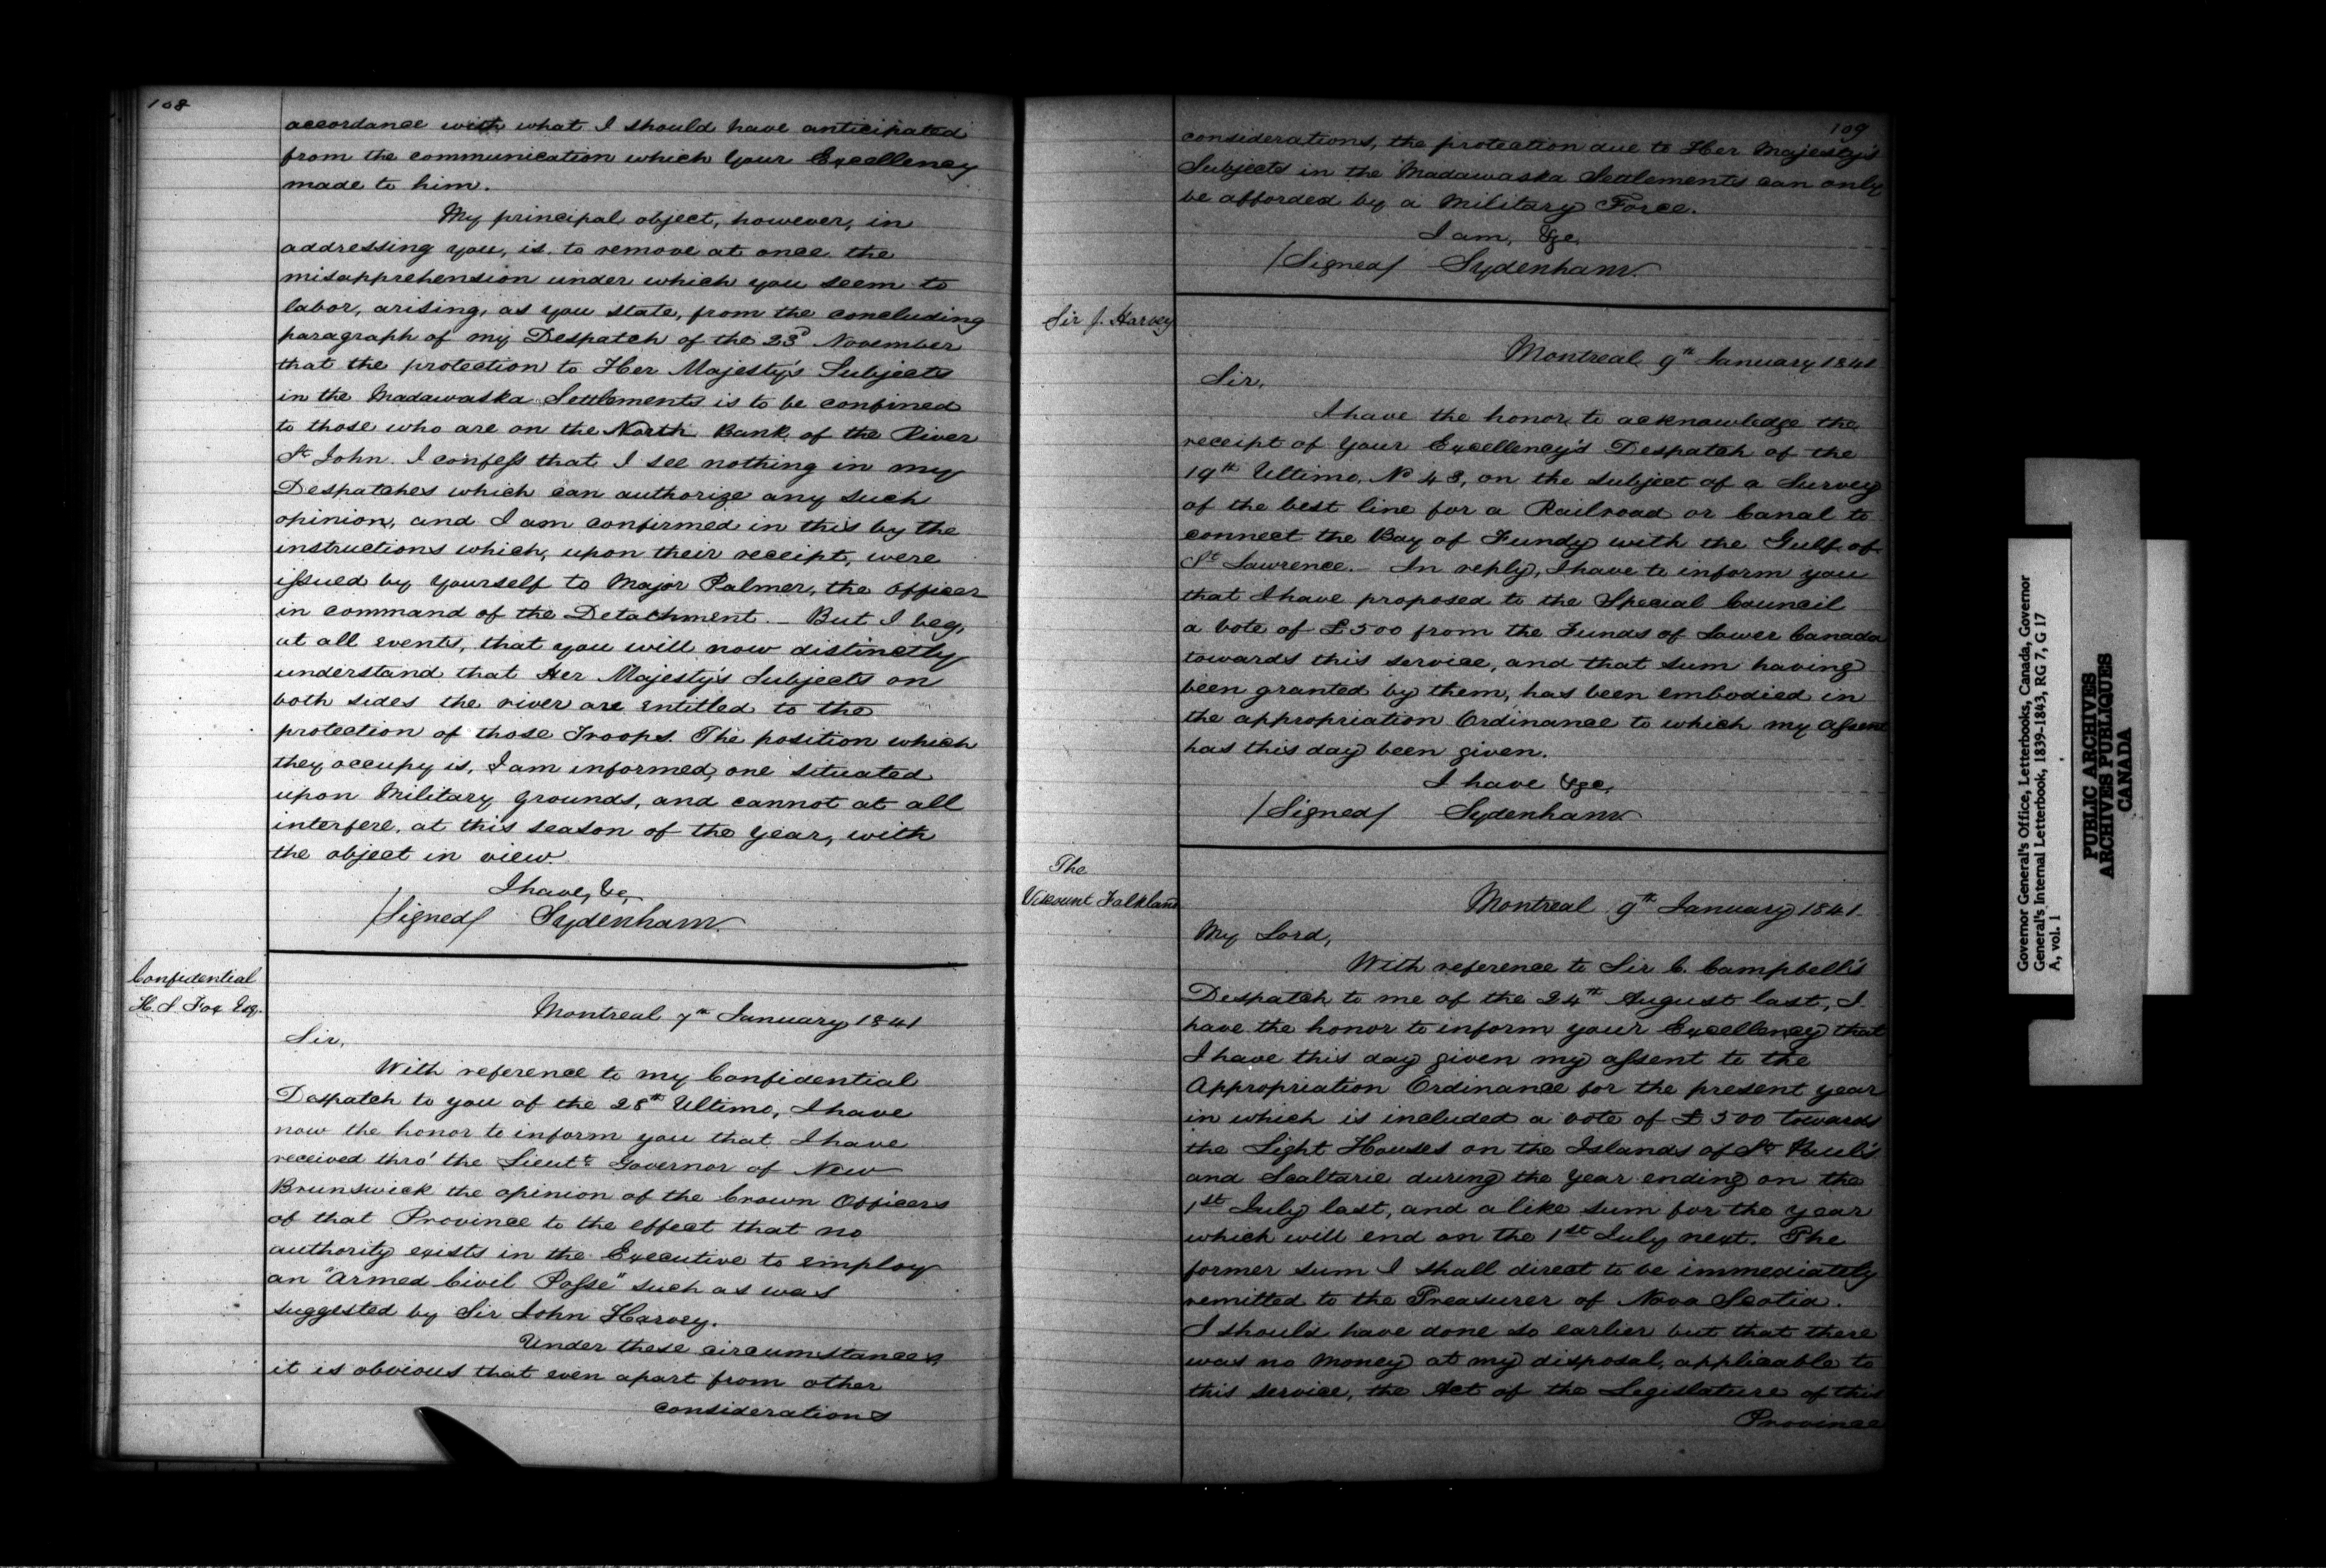 108
accordance with what I should have anticipated
from the communication which Your Excellency
made to him.
My principal object, however, in
addressing you, is to remove at once the
misapprehension under which you seem to
labor, arising, as you state, from the concluding
paragraph of my Despatch of the 23d November
that the protection to Her Majesty's Subjects
in the Madawaska Settlements is to be confined
to those who are on the North Bank of the River
St John. I confess that I see nothing in my
Despatches which can authorize any such
opinion, and I am confirmed in this by the
instructions which, upon their receipt, were
issued by Yourself to Major Palmer, the Officer
in command of the Detachment. — But I beg,
at all events, that you will now distinctly
understand that Her Majesty's Subjects on
both sides the river are entitled to the
protection of those Troops. The position which
they occupy is, I am informed, one situated
upon Military grounds, and cannot at all
interfere, at this season of the Year, with
the object in view.
I have, &c,
/Signed/ Sydenham.
Confidential
H. S Fox Esq.
Montreal 7th January 1841
Sir,
With reference to my Confidential
Despatch to you of the 28th Ultimo, I have
now the honor to inform you that I have
received thro' the Lieutt Governor of New
Brunswick the opinion of the Crown Officers
of that Province to the effect that no
authority exists in the Executive to employ
an "Armed Civil Posse" such as was
suggested by Sir John Harvey.
Under these circumstances,
it is obvious that even apart from other
considerations
109
considerations, the protection due to Her Majesty's
Subjects in the Madawaska Settlements can only
be afforded by a Military Force.
I am, &c,
/Signed/ Sydenham.
Sir J. Harvey
Montreal 9th January 1841
Sir,
I have the honor to acknowledge the
receipt of Your Excellency's Despatch of the
19th Ultimo, No 48, on the subject of a Survey
of the best line for a Railroad or Canal to
connect the Bay of Fundy with the Gulf of
St Lawrence. — In reply, I have to inform you
that I have proposed to the Special Council
a vote of £500 from the Funds of Lower Canada
towards this service, and that sum having
been granted by them, has been embodied in
the appropriation Ordinance to which my Assent
has this day been given.
I have &c,
/Signed/ Sydenham
The
Viscount Falkland
Montreal 9th January 1841.
My Lord,
With reference to Sir C. Campbell's
Despatch to me of the 24th August last, I
have the honor to inform your Excellency that
I have this day given my assent to the
Appropriation Ordinance for the present year
in which is included a vote of £500 towards
the Light Houses on the Islands of St Paul's
and Scaltarie during the Year ending on the
1st July last, and a like sum for the year
which will end on the 1st July next. The
former sum I shall direct to be immediately
remitted to the Treasurer of Nova Scotia.
I should have done so earlier but that there
was no money at my disposal, applicable to
this service, the Act of the Legislature of this
Province
Governor General's Office, Letterbooks, Canada, Governor
General's Internal Letterbook, 1839-1843, RG 7, G 17
A, vol. 1
PUBLIC ARCHIVES
ARCHIVES PUBLIQUES
CANADA